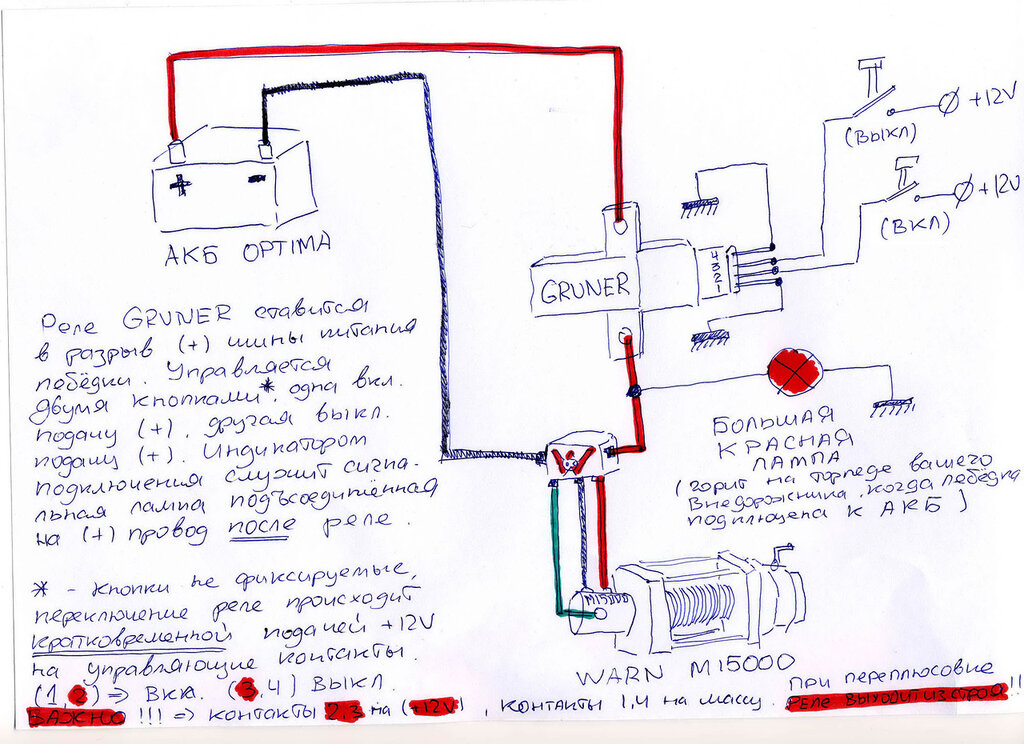 +12V
(ВЫКЛ)
+12V
(ВКЛ)
+ -
АКБ OPTIMA
GRUNER
4
3
2
1
Реле GRUNER ставится
в разрыв (+) шины питания
лебёдки. Управляется
двумя кнопками*, одна вкл.
подачу (+), другая выкл.
подачу (+). Индикатором
подключения служит сигна-
льная лампа подъсоединённая
на (+) провод после реле.
БОЛЬШАЯ
КРАСНАЯ
ЛАМПА
(горит на торпеде вашего
внедорожника, когда лебёдка
подключена к АКБ)
* - Кнопки не фиксируемые,
переключение реле происходит
кратковременной подачей +12V
на управляющие контакты.
(1,2) => ВКЛ. (3,4) ВЫКЛ.
ВАЖНО !!! => контакты 2,3 на (+12V), контакты 1,4 на массу. При переплюсовке
реле выходит из строя!!!
WARN M15000